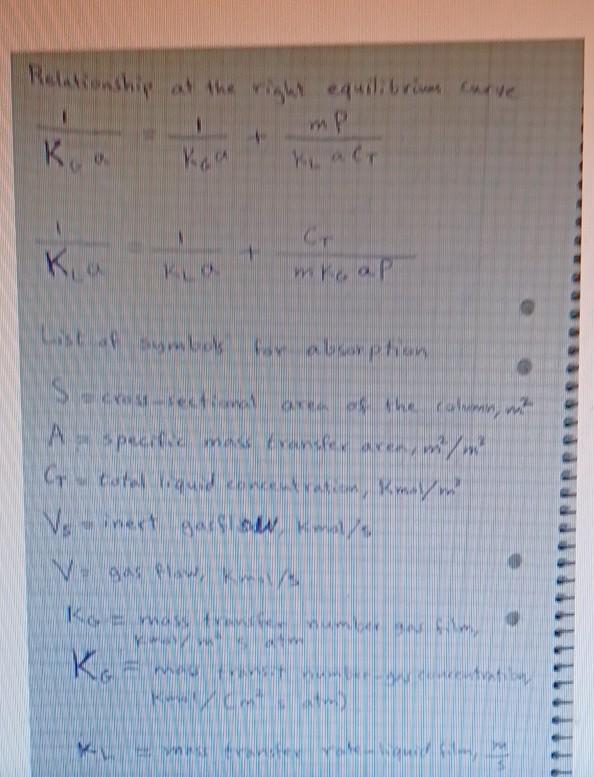 Relationship at the right equilibrium curve
1/(K_G a) = 1/(k_G a) + mP/(k_L a C_T)
1/(K_L a) = 1/(k_L a) + C_T/(m k_G a P)
List of symbols for absorption
S = cross-sectional area of the column, m²
A = specific mass transfer area, m²/m³
C_T = total liquid concentration, Kmol/m³
V_s = inert gasflow, Kmol/s
V = gas flow, Kmol/s
K_G = mass transfer number gas film,
Kmol/m² s atm
K_G = mass number-gas concentration
Kmol/(m² s atm)
K_L = mass transfer rate-liquid film, m/s